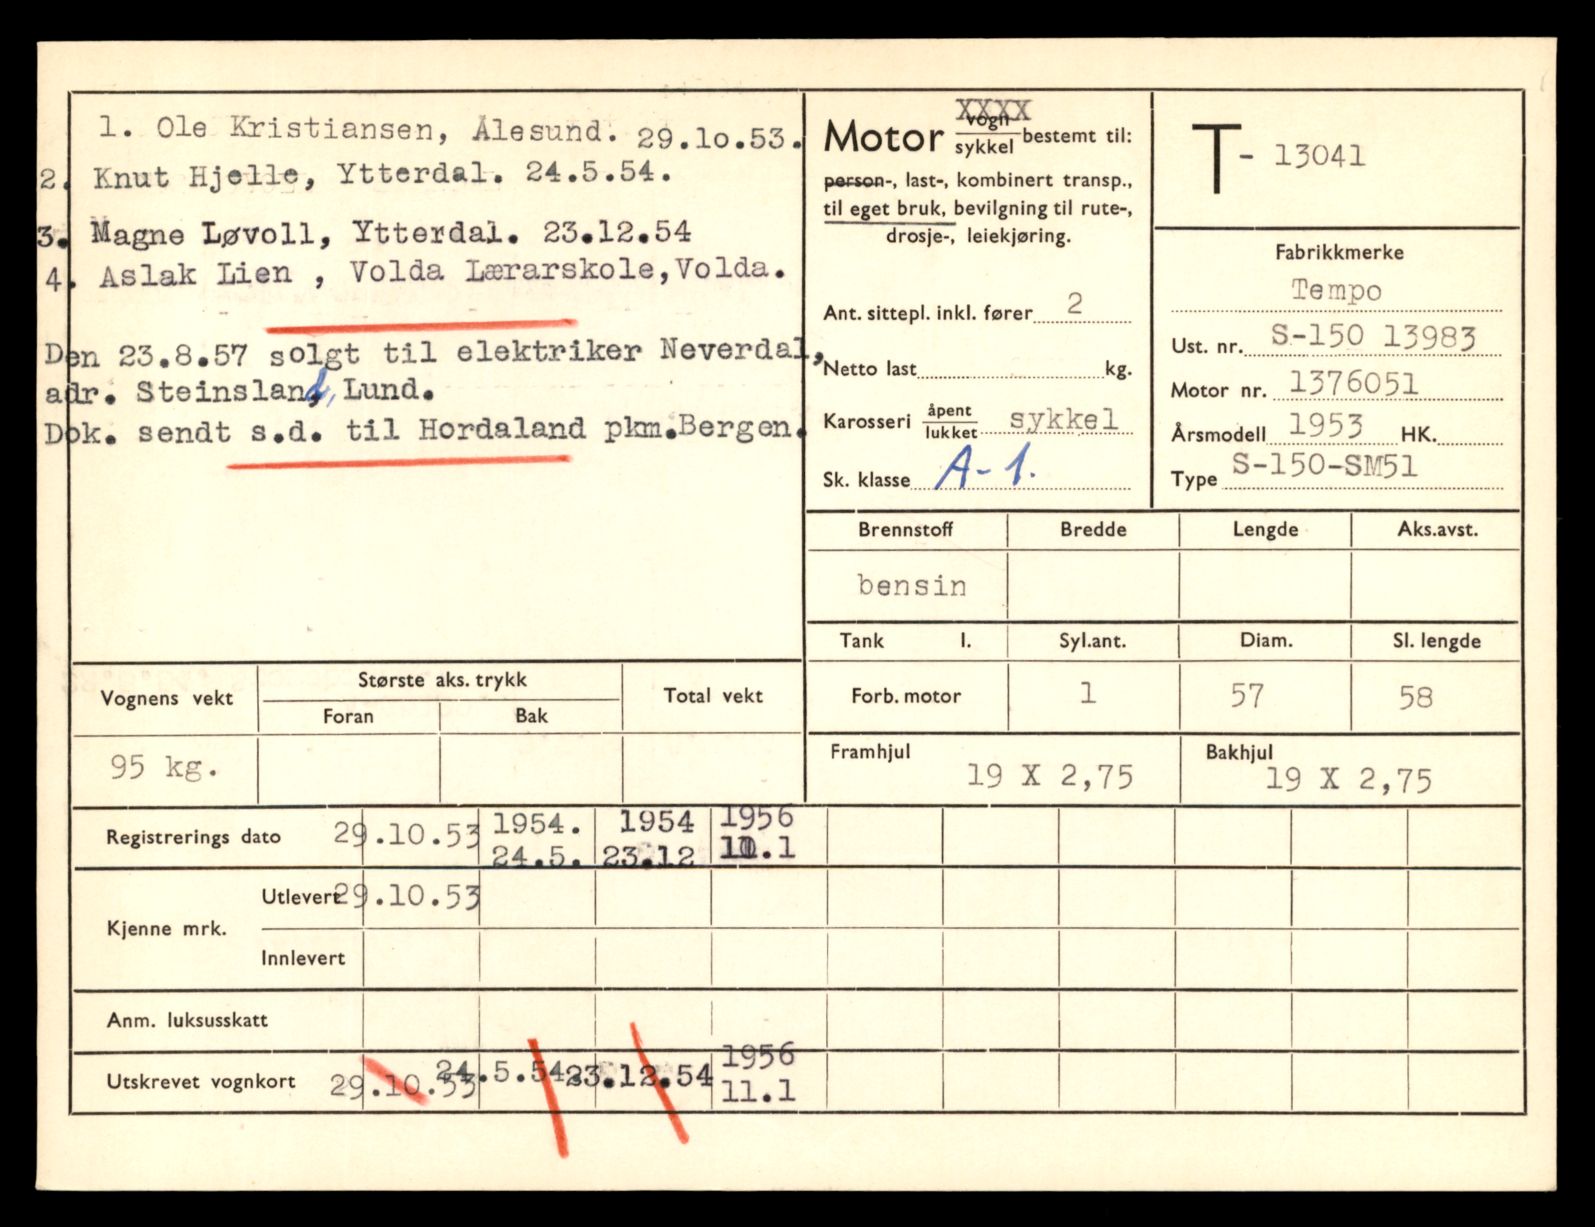 1. Ole Kristiansen, Ålesund. 29.10.53.
2. Knut Hjelle, Ytterdal. 24.5.54.
3. Magne Løvoll, Ytterdal. 23.12.54
4. Aslak Lien , Volda Lærarskole, Volda.
Den 23.8.57 solgt til elektriker Neverdal,
adr. Steinsland, Lund.
Dok. sendt s.d. til Hordaland pkm. Bergen.
XXXX
Motor vogn sykkel bestemt til:
person-, last-, kombinert transp.,
til eget bruk, bevilgning til rute-,
drosje-, leiekjøring.
Ant. sittepl. inkl. fører 2
Netto last kg.
Karosseri åpent lukket sykkel
Sk. klasse A-1.
T - 13041
Fabrikkmerke
Tempo
Ust. nr. S-150 13983
Motor nr. 1376051
Årsmodell 1953 HK.
Type S-150-SM51
Brennstoff Bredde Lengde Aks.avst.
bensin
Tank l. Syl.ant. Diam. Sl. lengde
Forb. motor 1 57 58
Framhjul 19 X 2,75 Bakhjul 19 X 2,75
Vognens vekt Største aks. trykk Total vekt
Foran Bak
95 kg.
Registrerings dato 29.10.53 1954. 24.5. 1954 23.12 1956 11.1
Kjenne mrk. Utlevert 29.10.53
Innlevert
Anm. luksusskatt
Utskrevet vognkort 29.10.53 24.5.54. 23.12.54 1956 11.1